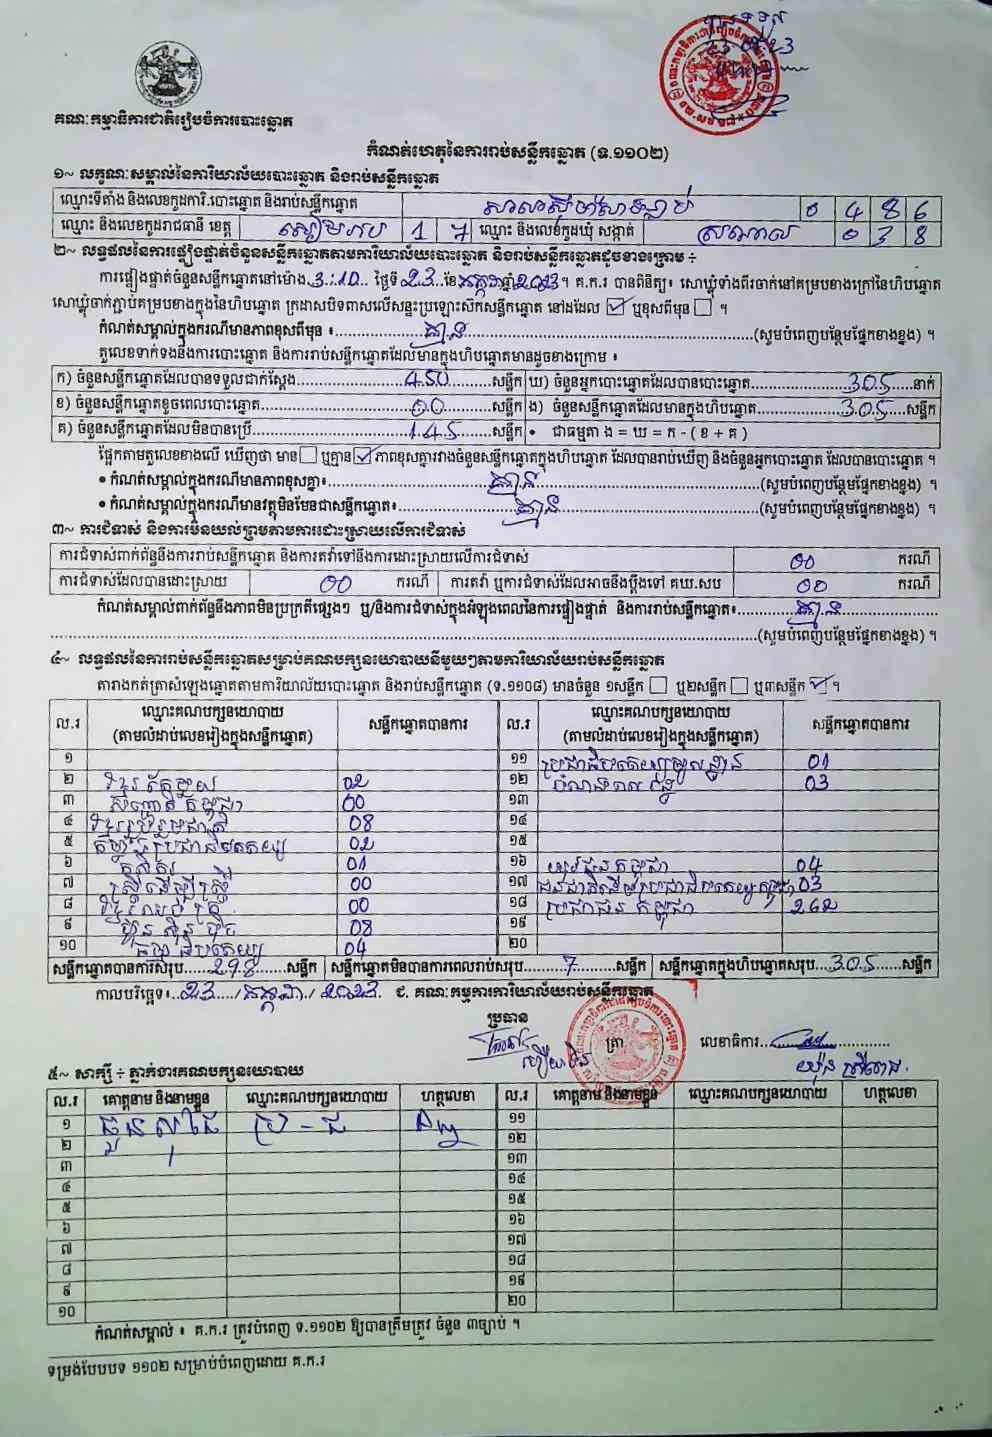 គណៈកម្មាធិការជាតិរៀបចំការបោះឆ្នោត
កំណត់ហេតុនៃការរាប់សន្លឹកឆ្នោត (ទ.១១០២)
១~ លក្ខណៈសម្គាល់នៃការិយាល័យបោះឆ្នោត និងរាប់សន្លឹកឆ្នោត
ឈ្មោះទីតាំង និងលេខកូដការិ.បោះឆ្នោត និងរាប់សន្លឹកឆ្នោត 0 4 8 6
ឈ្មោះ និងលេខកូដរាជធានី ខេត្ត សៀមរាប 1 7 ឈ្មោះ និងលេខកូដឃុំ សង្កាត់ 0 3 8
២~ លទ្ធផលនៃការផ្ទៀងផ្ទាត់ចំនួនសន្លឹកឆ្នោតតាមការិយាល័យបោះឆ្នោត និងរាប់សន្លឹកឆ្នោតដូចខាងក្រោម ÷
ការផ្ទៀងផ្ទាត់ចំនួនសន្លឹកឆ្នោតនៅម៉ោង 3:10 ថ្ងៃទី 23 ខែ កក្កដា ឆ្នាំ 2023។ គ.ក.រ បានពិនិត្យ៖ សោឃ្លុំទាំងពីរចាក់នៅគម្របខាងក្រៅនៃហិបឆ្នោត
សោឃ្លុំចាក់ភ្ជាប់គម្របខាងក្នុងនៃហិបឆ្នោត ក្រដាសបិទពាសលើសន្ទះប្រឡោះស៊កសន្លឹកឆ្នោត នៅដដែល ☑ ឬខុសពីមុន ☐ ។
កំណត់សម្គាល់ក្នុងករណីមានភាពខុសពីមុន ៖ គ្មាន (សូមបំពេញបន្ថែមផ្នែកខាងខ្នង) ។
តួលេខទាក់ទងនឹងការបោះឆ្នោត និងការរាប់សន្លឹកឆ្នោតដែលមានក្នុងហិបឆ្នោតមានដូចខាងក្រោម ៖
ក) ចំនួនសន្លឹកឆ្នោតដែលបានទទួលជាក់ស្តែង 450 សន្លឹក ឃ) ចំនួនអ្នកបោះឆ្នោតដែលបានបោះឆ្នោត 305 នាក់
ខ) ចំនួនសន្លឹកឆ្នោតខូចពេលបោះឆ្នោត 00 សន្លឹក ង) ចំនួនសន្លឹកឆ្នោតដែលមានក្នុងហិបឆ្នោត 305 សន្លឹក
គ) ចំនួនសន្លឹកឆ្នោតដែលមិនបានប្រើ 145 សន្លឹក • ជាធម្មតា ង = ឃ = ក - ( ខ + គ )
ផ្អែកតាមតួលេខខាងលើ ឃើញថា មាន ☐ ឬគ្មាន ☑ ភាពខុសគ្នារវាងចំនួនសន្លឹកឆ្នោតក្នុងហិបឆ្នោត ដែលបានរាប់ឃើញ និងចំនួនអ្នកបោះឆ្នោត ដែលបានបោះឆ្នោត ។
• កំណត់សម្គាល់ក្នុងករណីមានភាពខុសគ្នា៖ គ្មាន (សូមបំពេញបន្ថែមផ្នែកខាងខ្នង) ។
• កំណត់សម្គាល់ក្នុងករណីមានវត្ថុមិនមែនជាសន្លឹកឆ្នោត៖ គ្មាន (សូមបំពេញបន្ថែមផ្នែកខាងខ្នង) ។
៣~ ការជំទាស់ និងការមិនយល់ព្រមតាមការដោះស្រាយលើការជំទាស់
ការជំទាស់ពាក់ព័ន្ធនឹងការរាប់សន្លឹកឆ្នោត និងការតវ៉ាទៅនឹងការដោះស្រាយលើការជំទាស់ 00 ករណី
ការជំទាស់ដែលបានដោះស្រាយ 00 ករណី ការតវ៉ា ឬការជំទាស់ដែលអាចនឹងប្តឹងទៅ គឃ.សប 00 ករណី
កំណត់សម្គាល់ពាក់ព័ន្ធនឹងភាពមិនប្រក្រតីផ្សេងៗ ឬ/និងការជំទាស់ក្នុងអំឡុងពេលនៃការផ្ទៀងផ្ទាត់ និងការរាប់សន្លឹកឆ្នោត៖ គ្មាន
(សូមបំពេញបន្ថែមផ្នែកខាងខ្នង) ។
៤~ លទ្ធផលនៃការរាប់សន្លឹកឆ្នោតសម្រាប់គណបក្សនយោបាយនីមួយៗតាមការិយាល័យរាប់សន្លឹកឆ្នោត
តារាងកត់ត្រាសំឡេងឆ្នោតតាមការិយាល័យបោះឆ្នោត និងរាប់សន្លឹកឆ្នោត (ទ.១១០៨) មានចំនួន ១សន្លឹក ☐ ឬ២សន្លឹក ☐ ឬ៣សន្លឹក ☑ ។
ល.រ ឈ្មោះគណបក្សនយោបាយ (តាមលំដាប់លេខរៀងក្នុងសន្លឹកឆ្នោត) សន្លឹកឆ្នោតបានការ ល.រ ឈ្មោះគណបក្សនយោបាយ (តាមលំដាប់លេខរៀងក្នុងសន្លឹកឆ្នោត) សន្លឹកឆ្នោតបានការ
១ ១១ 01
២ 02 ១២ 03
៣ 00 ១៣
៤ 08 ១៤
៥ 02 ១៥
៦ កសិករ 01 ១៦ យុវជនកម្ពុជា 04
៧ ស្ត្រីដើម្បីស្ត្រី 00 ១៧ 03
៨ 00 ១៨ ប្រជាជនកម្ពុជា 262
៩ ហ៊្វុនស៊ិនប៉ិច 08 ១៩
១០ 04 ២០
សន្លឹកឆ្នោតបានការសរុប 298 សន្លឹក សន្លឹកឆ្នោតមិនបានការពេលរាប់សរុប 7 សន្លឹក សន្លឹកឆ្នោតក្នុងហិបឆ្នោតសរុប 305 សន្លឹក
កាលបរិច្ឆេទ៖ 23 / កក្កដា / 2023 ជ. គណៈកម្មការការិយាល័យរាប់សន្លឹកឆ្នោត
ប្រធាន ត្រា លេខាធិការ
៥~ សាក្សី ÷ ភ្នាក់ងារគណបក្សនយោបាយ
ល.រ គោត្តនាម និងនាមខ្លួន ឈ្មោះគណបក្សនយោបាយ ហត្ថលេខា ល.រ គោត្តនាម និងនាមខ្លួន ឈ្មោះគណបក្សនយោបាយ ហត្ថលេខា
១ ប្រ - ជ ១១
២ ១២
៣ ១៣
៤ ១៤
៥ ១៥
៦ ១៦
៧ ១៧
៨ ១៨
៩ ១៩
១០ ២០
កំណត់សម្គាល់ ៖ គ.ក.រ ត្រូវបំពេញ ទ.១១០២ ឱ្យបានត្រឹមត្រូវ ចំនួន ៣ច្បាប់ ។
ទម្រង់បែបបទ ១១០២ សម្រាប់បំពេញដោយ គ.ក.រ